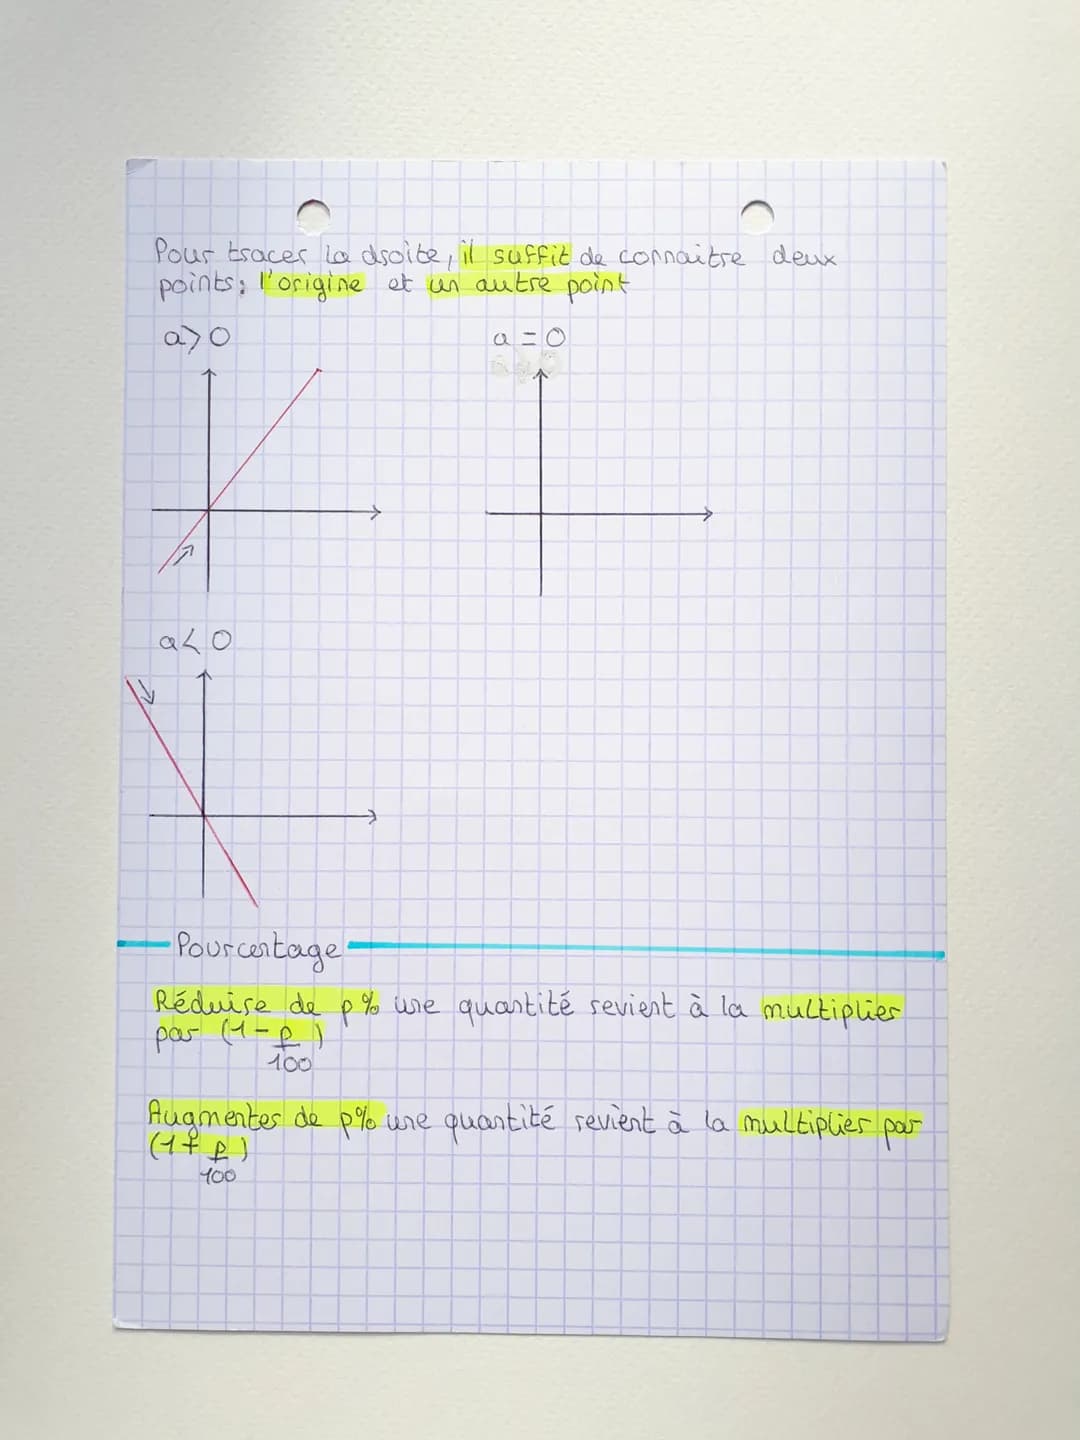 Pour tracer la droite, il suffit de connaitre deux
points: l'origine et un autre point
a>0
a = 0
a<0
Pourcentage
Réduire de p% une quantité revient à la multiplier
par (1-p/100)
Augmenter de p% une quantité revient à la multiplier par
(1+p/100)